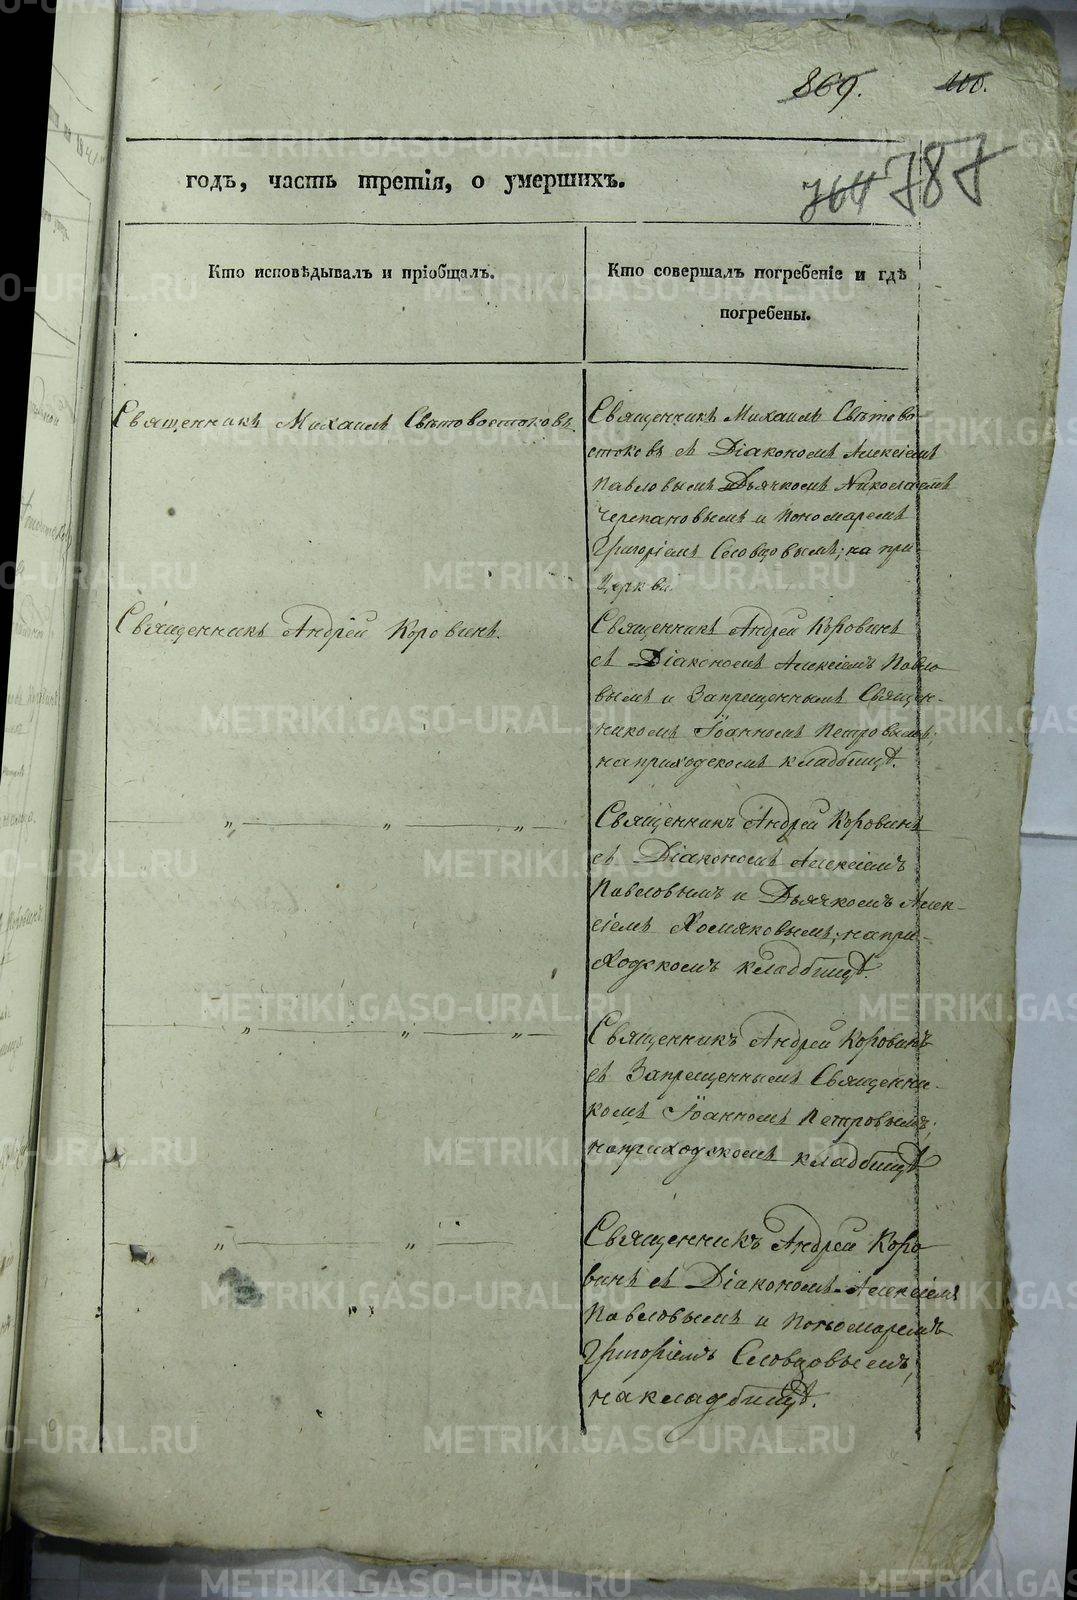 869.
110.
годъ, часть третія, о умершихъ.
764 787
Кто исповѣдывалъ и пріобщалъ.
Кто совершалъ погребеніе и гдѣ
погребены.
Священникъ Михаилъ Свѣтовостоковъ.
Священникъ Михаилъ Свѣтово
стоковъ съ Діакономъ Алексіемъ
Павловымъ и Дьячкомъ Николаемъ
Черепановымъ и Пономаремъ
Григоріемъ Словцовымъ; на при
Церкви.
Священникъ Андрей Коровинъ.
Священникъ Андрей Коровинъ
съ Діакономъ Алексіемъ Павло
вымъ и Запрещеннымъ Священ-
никомъ Іоанномъ Петровымъ;
на приходскомъ кладбищѣ.
„ „ „
Священникъ Андрей Коровинъ
съ Діакономъ Алексіемъ
Павловымъ и Дьячкомъ Алек-
сіемъ Хомяковымъ; на при-
ходскомъ кладбищѣ.
„ „ „
Священникъ Андрей Коровинъ
съ Запрещеннымъ Священни-
комъ Іоанномъ Петровымъ;
на приходскомъ кладбищѣ
„ „
Священникъ Андрей Коро
винъ съ Діакономъ Алексіемъ
Павловымъ и Пономаремъ
Григоріемъ Словцовымъ;
на кладбищѣ.
METRIKI.GASO-URAL.RU